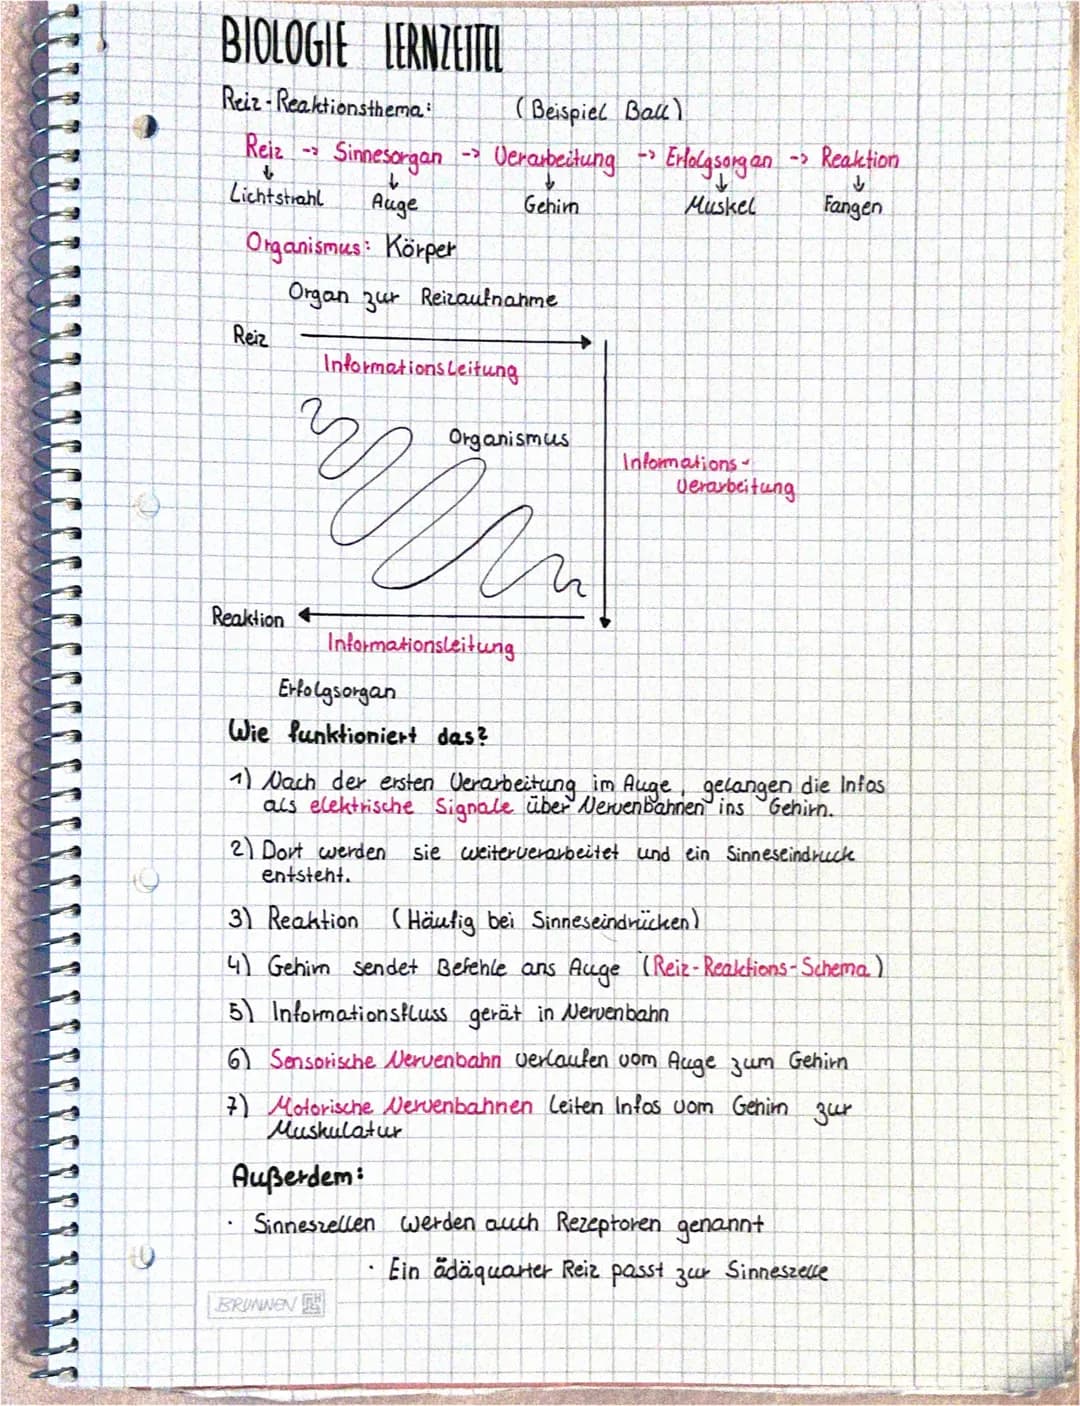 BIOLOGIE LERNZETTEL
Reiz-Reaktionsthema: (Beispiel Ball)
Reiz -> Sinnesorgan -> Verarbeitung -> Erfolgsorgan -> Reaktion
↓ ↓ ↓ ↓ ↓
Lichtstrahl Auge Gehirn Muskel Fangen
Organismus: Körper
Organ zur Reizaufnahme
Reiz
Informationsleitung
Organismus
Informations-
verarbeitung
Reaktion
Informationsleitung
Erfolgsorgan
Wie funktioniert das?
1) Nach der ersten Verarbeitung im Auge, gelangen die Infos
als elektrische Signale über Nervenbahnen ins Gehirn.
2) Dort werden sie weiterverarbeitet und ein Sinneseindruck
entsteht.
3) Reaktion (Häufig bei Sinneseindrücken)
4) Gehirn sendet Befehle ans Auge (Reiz-Reaktions-Schema)
5) Informationsfluss gerät in Nervenbahn
6) Sensorische Nervenbahn verlaufen vom Auge zum Gehirn
7) Motorische Nervenbahnen leiten Infos vom Gehirn zur
Muskulatur
Außerdem:
· Sinneszellen werden auch Rezeptoren genannt
· Ein ädäquarter Reiz passt zur Sinneszelle
BRUNNEN